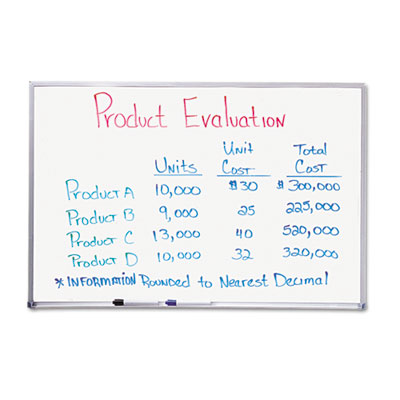 Product Evaluation
Units Unit Cost Total Cost
Product A 10,000 $30 $300,000
Product B 9,000 25 225,000
Product C 13,000 40 520,000
Product D 10,000 32 320,000
* Information Rounded to Nearest Decimal